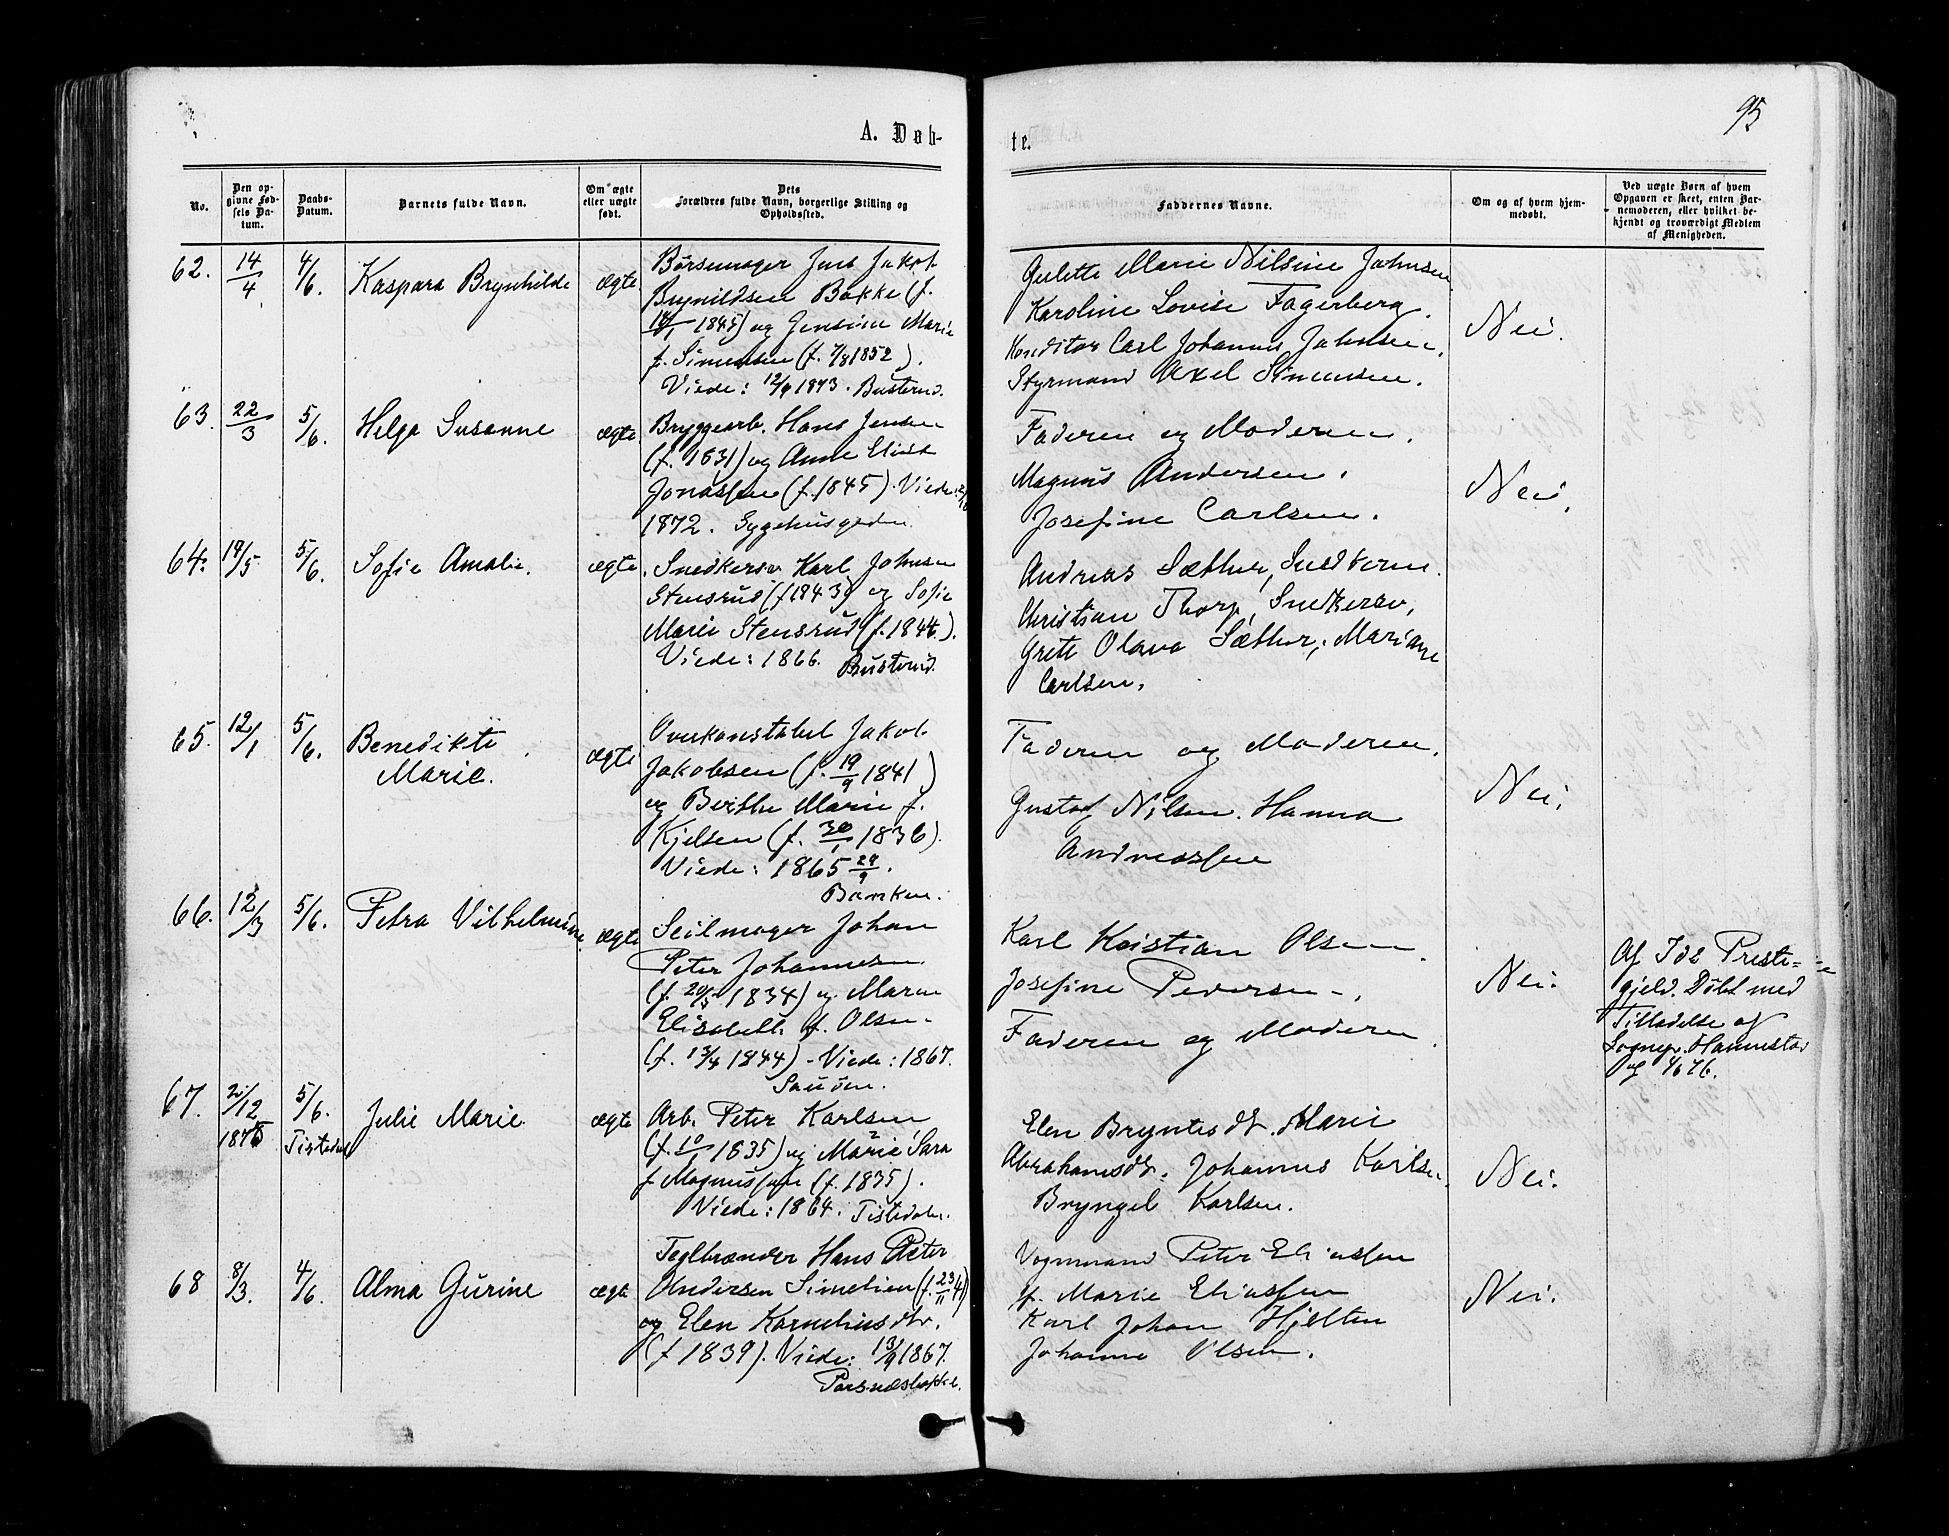 95
A. Døb-
te.
No.
Den op-
givne Fød-
sels Da-
tum.
Daabs-
Datum.
Barnets fulde Navn.
Om ægte
eller uægte
født.
Dets
Forældres fulde Navn, borgerlige Stilling og
Opholdssted.
Faddernes Navne.
Om og af hvem hjem-
medøbt.
Ved uægte Børn af hvem
Opgaven er skeet, enten Bar-
nemoderen, eller hvilket be-
kjendt og troværdigt Medlem
af Menigheden.
62. 14/4 4/6. Kaspara Brynhilde ægte
Børsemager Jens Jakob
Brynildsen Bakke (f.
1845) og Jensine Marie
f. Simensen (f. 7/8 1852).
Viede: 12/9 1873. Busterud.
Gulette Marie Nilsine Jahnsen
Karoline Lovise Fagerberg.
Konditor Carl Johannes Jahnsen.
Styrmand Axel Simensen.
Nei.
63. 22/3 5/6. Helga Susanne ægte
Bryggearb. Hans Jensen
(f. 1831) og Anne Elise
Jonassen (f. 1845). Viede:
1872. Sygehusgaden.
Faderen og Moderen.
Magnus Andersen.
Josefine Carlsen.
Nei.
64. 19/5 5/6. Sofie Amalie. ægte
Snedkersv Karl Johnsen
Stensrud (f 1843) og Sofie
Marie Stensrud (f. 1844).
Viede: 1866. Busterud.
Andreas Sæther,
Christian Thorp, Snekkersv,
Grete Olava Sæther, Mariane
Carlsen.
65. 12/1 5/6. Benedikte
Marie. ægte
Overkonstabel Jakob
Jakobsen (f. 19/9 1841)
og Berthe Marie f.
Kjelsen (f. 30/1 1836).
Viede: 1865 29/9.
Banken.
Faderen og Moderen.
Gustaf Nilsen. Hanna
Andreassen
Nei.
66. 12/3 5/6. Petra Vilhelmine ægte
Seilmager Johan
Peter Johannesen
(f. 20/5 1834) og Maren
Elisabeth f. Olsen
(f. 13/4 1844) - Viede: 1867.
Sauøen.
Karl Kristian Olsen.
Josefine Pedersen.
Faderen og Moderen.
Nei.
Af Ids Preste-
gjeld. Døbt med
Tilladelse af
Sognepr. Hannestad
4/6 76.
67. 21/12
1875 5/6.
Tistedal Julie Marie. ægte
Arb. Peter Karlsen
(f. 10/1 1835) og Marie Sara
f Magnussen (f. 1835).
Viede: 1864. Tistedalen.
Elen Bryntesdt. Marie
Abrahamsdt. Johannes Karlsen.
Bryngel Karlsen.
Nei.
68 8/3. 4/6. Alma Gurine ægte
Teglbrænder Hans Peter
Andersen Simelien (f. 23/11 41)
og Elen Kornelius dtr.
(f 1839). Viede: 13/9 1867.
Vognmand Peter Eliassen
Marie Eliassen
Karl Johan Hjelten
Johanne Olsen.
Nei.